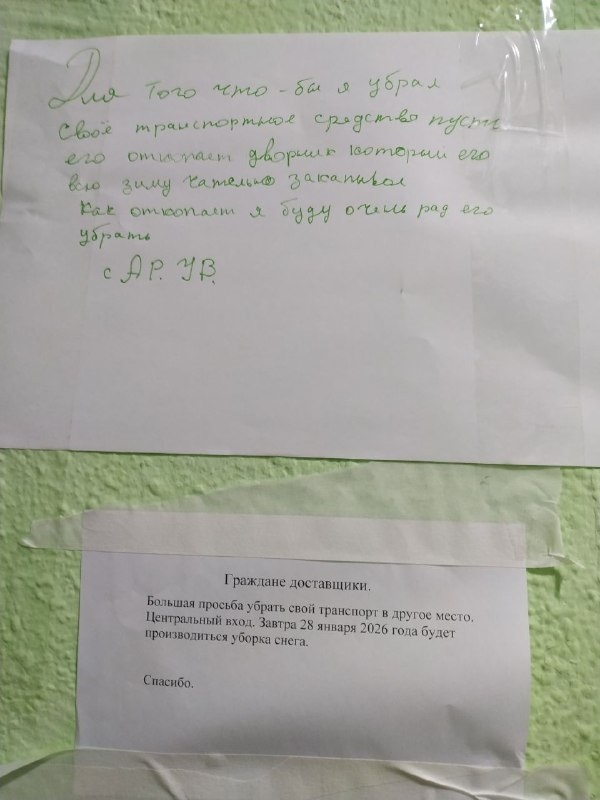 Для того что-бы я убрал
своё транспортное средство пусть
его откопает дворник который его
всю зиму чательно закапывал
как откопает я буду очень рад его
убрать
с АР. УВ.
Граждане доставщики.
Большая просьба убрать свой транспорт в другое место.
Центральный вход. Завтра 28 января 2026 года будет
производиться уборка снега.
Спасибо.